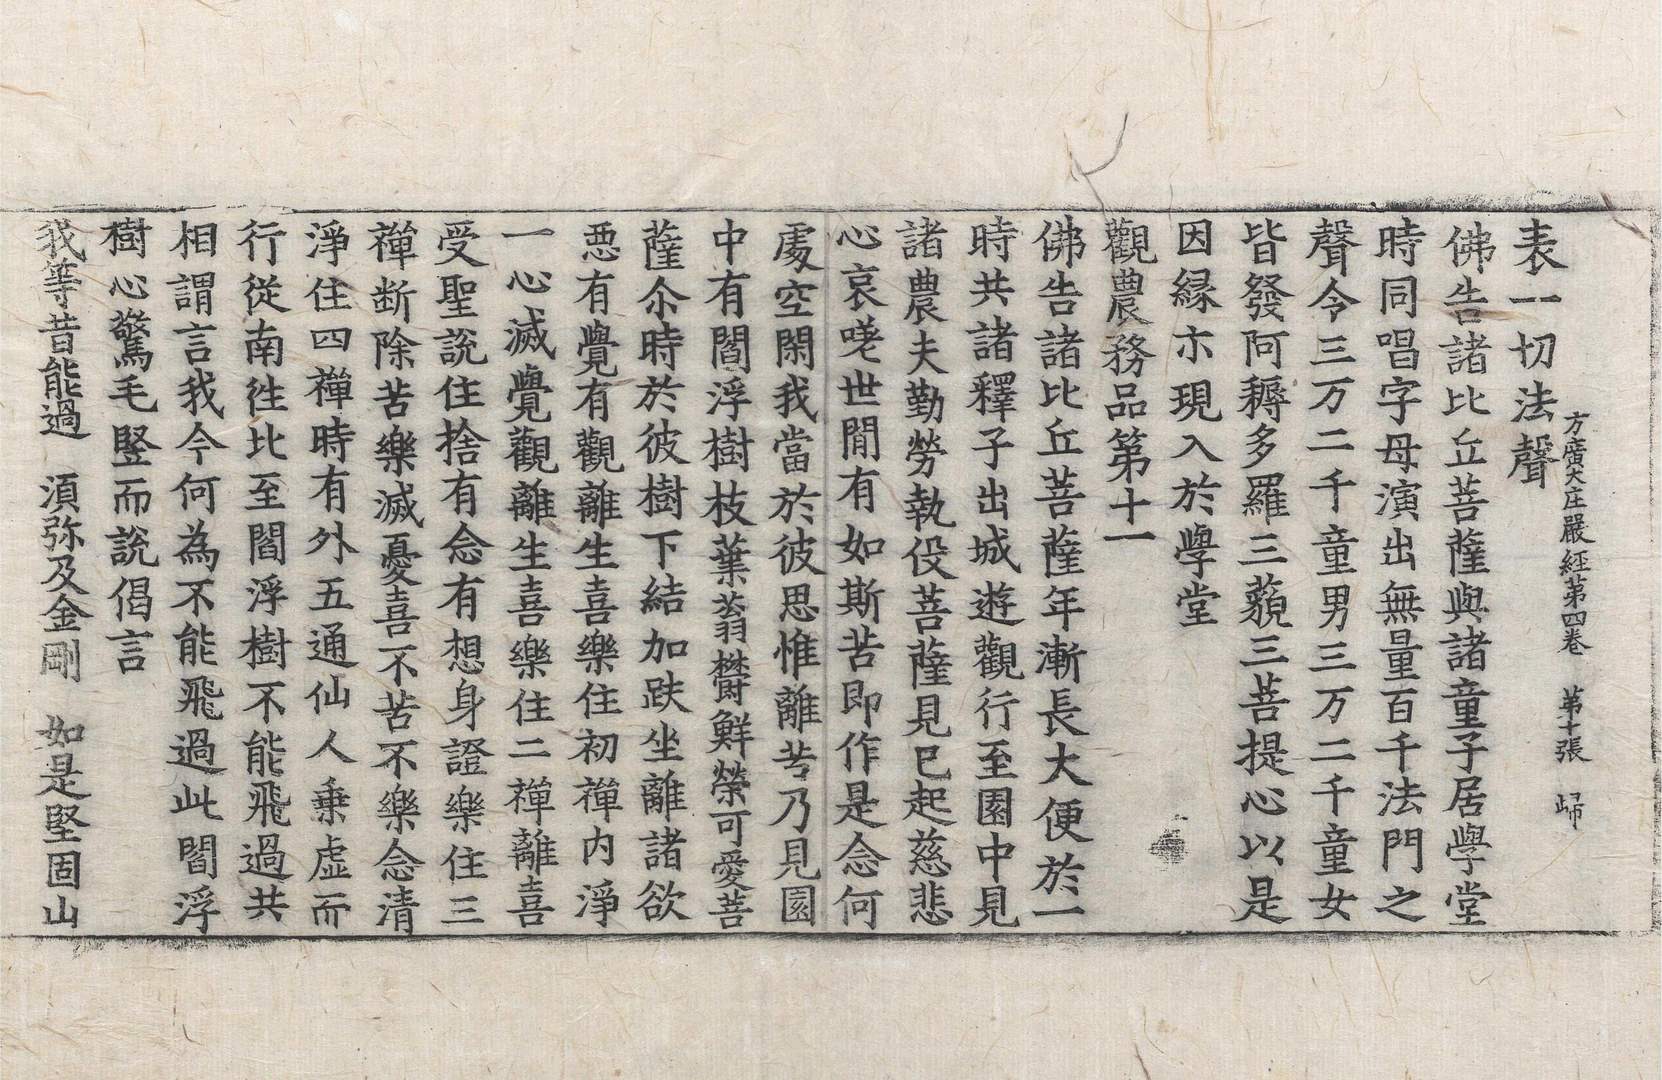 方廣大庄嚴經第四卷　第十張　歸
表一切法聲
佛告諸比丘菩薩與諸童子居學堂
時同唱字母演出無量百千法門之
聲令三万二千童男三万二千童女
皆發阿耨多羅三藐三菩提心以是
因縁示現入於學堂
觀農務品第十一
佛告諸比丘菩薩年漸長大便於一
時共諸釋子出城遊觀行至園中見
諸農夫勤勞執役菩薩見已起慈悲
心哀嗟世間有如斯苦即作是念何
處空閑我當於彼思惟離苦乃見園
中有閻浮樹枝葉蓊欝鮮榮可愛菩
薩尒時於彼樹下結加趺坐離諸欲
惡有覺有觀離生喜樂住初禪内淨
一心滅覺觀離生喜樂住二禪離喜
受聖說住捨有念有想身證樂住三
禪断除苦樂滅憂喜不苦不樂念清
淨住四禪時有外五通仙人乗虛而
行從南往北至閻浮樹不能飛過共
相謂言我今何為不能飛過此閻浮
樹心驚毛竪而說偈言
我等昔能過　湏弥及金剛　如是堅固山